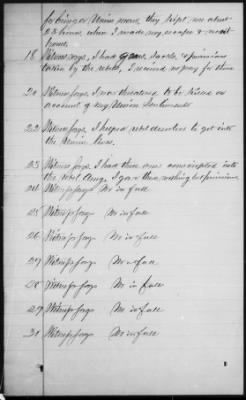 for being a Union man, they kept me about
24 hours when I made my escape & went
home.
18 Witness says, I had guns, saddle, & provisions
taken by the rebels, I received no pay for them
20 Witness says, I was threatened, to be killed on
account of my Union Sentiments
22 Witness says, I helped rebel deserters to get into
the Union lines.
23 Witness says, I had three sons conscripted into
the rebel Army. I gave them nothing but provisions
24 Witness says No in full
25 Witness says No in full
26 Witness says No in full
27 Witness says No in full
28 Witness says No in full
29 Witness says No in full
30 Witness says No in full